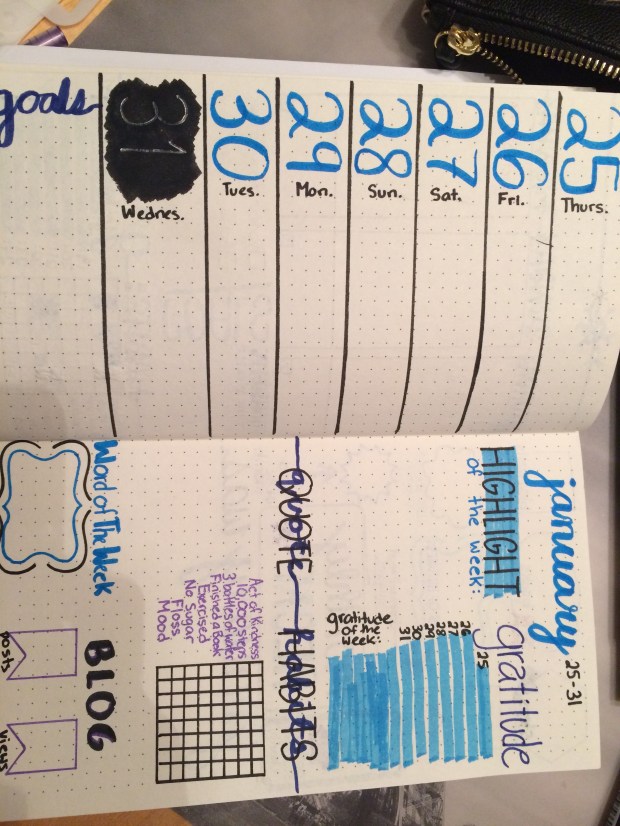 25
Thurs.
26
Fri.
27
Sat.
28
Sun.
29
Mon.
30
Tues.
31
Wednes.
goals
january 25-31
HIGHLIGHT
of the week:
gratitude
25
26
27
28
29
30
31
gratitude
of the
week:
QUOTE
quote
HABITS
habits
Act of Kindness
10,000 steps
3 bottles of water
Finished a Book
Exercised
No Sugar
Floss
Mood
Word of The Week
BLOG
posts
views